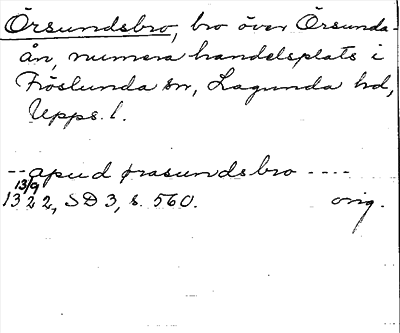 Örsundsbro, bro över Örsunda-
ån, numera handelsplats i
Fröslunda sn, Lagunda hd,
Upps. l.
-- apud ørasundsbro ----
13/9
1322, SD 3, s. 560. orig.